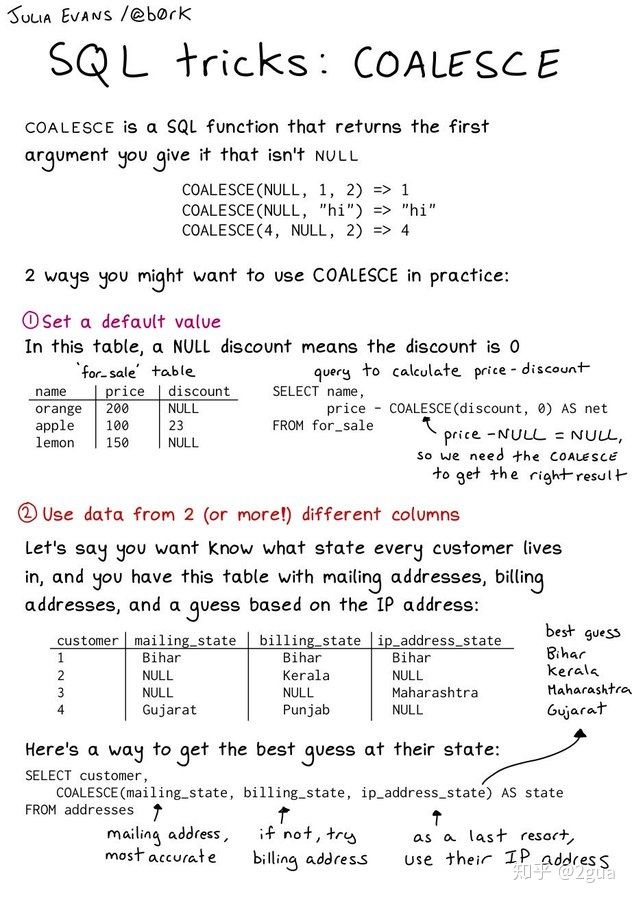 JULIA EVANS /@b0rk
SQL tricks: COALESCE
COALESCE is a SQL function that returns the first
argument you give it that isn't NULL
COALESCE(NULL, 1, 2) => 1
COALESCE(NULL, "hi") => "hi"
COALESCE(4, NULL, 2) => 4
2 ways you might want to use COALESCE in practice:
① Set a default value
In this table, a NULL discount means the discount is 0
'for_sale' table
name price discount
orange 200 NULL
apple 100 23
lemon 150 NULL
query to calculate price-discount
SELECT name,
price - COALESCE(discount, 0) AS net
FROM for_sale
price -NULL = NULL,
so we need the COALESCE
to get the right result
② Use data from 2 (or more!) different columns
Let's say you want know what state every customer lives
in, and you have this table with mailing addresses, billing
addresses, and a guess based on the IP address:
customer mailing_state billing_state ip_address_state
1 Bihar Bihar Bihar
2 NULL Kerala NULL
3 NULL NULL Maharashtra
4 Gujarat Punjab NULL
best guess
Bihar
Kerala
Maharashtra
Gujarat
Here's a way to get the best guess at their state:
SELECT customer,
COALESCE(mailing_state, billing_state, ip_address_state) AS state
FROM addresses
mailing address,
most accurate
if not, try
billing address
as a last resort,
use their IP address
知乎 @2gua